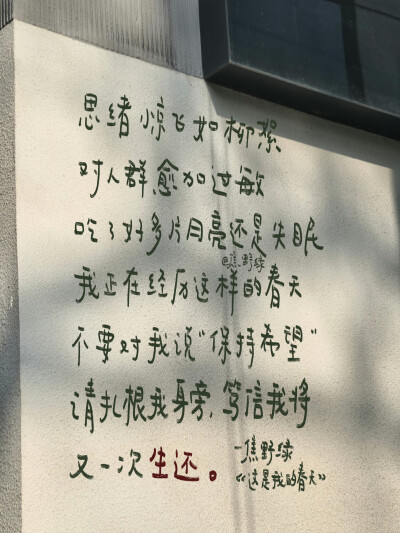 思绪惊飞如柳絮
对人群愈加过敏
吃了好多片月亮还是失眠
@焦野绿
我正在经历这样的春天
不要对我说“保持希望”
请扎根我身旁，笃信我将
又一次生还。
—焦野绿
《这是我的春天》